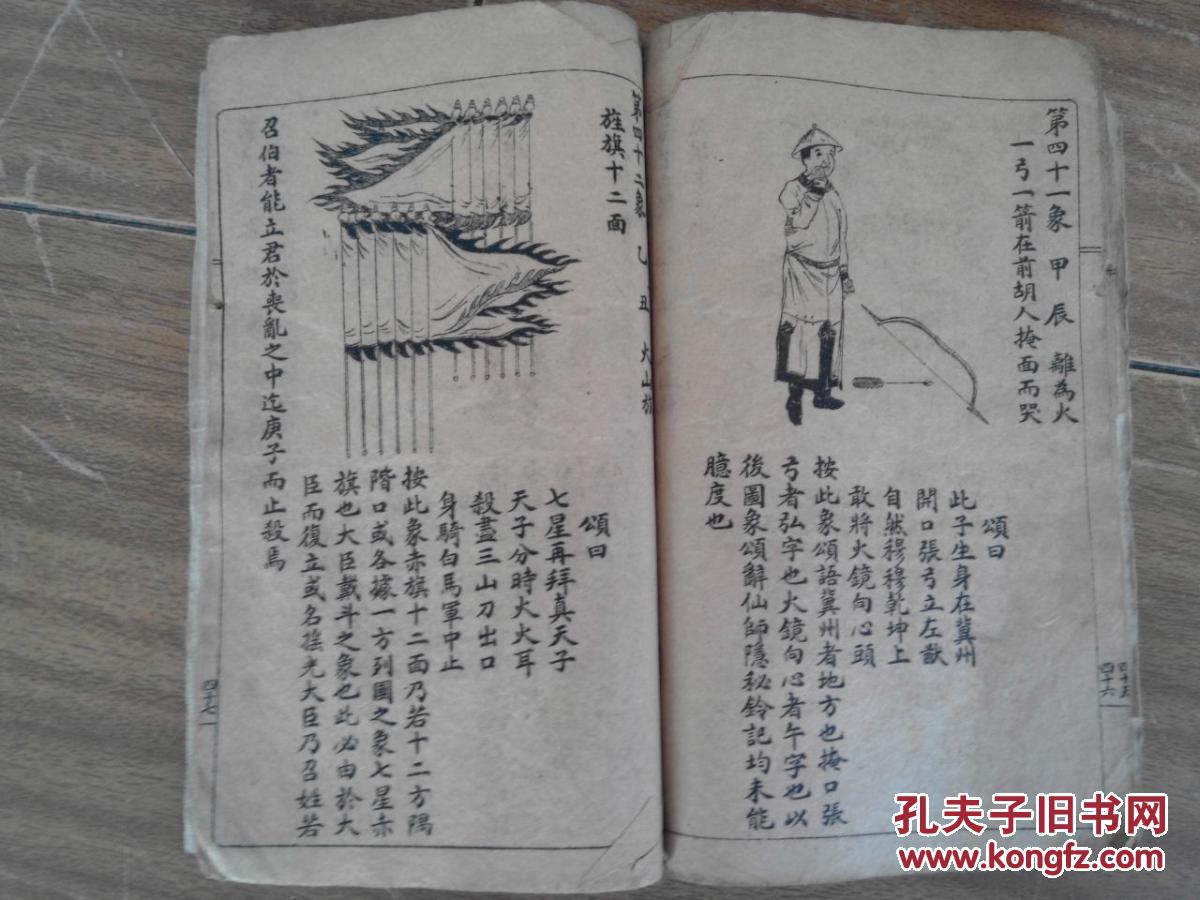 第四十一象 甲辰 離為火
一弓一箭在前胡人掩面而哭
頌曰
此子生身在冀州
開口張弓立左猷
自然穆穆乾坤上
敢將火鏡向心頭
按此象頌語冀州者地方也掩口張
弓者弘字也火鏡向心者午字也以
後圖象頌辭仙師隱秘鈐記均未能
臆度也
四十五
四十六
第四十二象 乙丑 火山旅
旌旗十二面
頌曰
七星再拜真天子
天子分時火火耳
殺盡三山刀出口
身騎白馬軍中止
按此象赤旗十二面乃若十二方隅
階口或各據一方列國之象七星赤
旗也大臣戴斗之象也此必由於大
臣而復立或名搖光大臣乃召姓若
召伯者能立君於喪亂之中迄庚子而止殺焉
四十七
孔夫子旧书网
www.kongfz.com